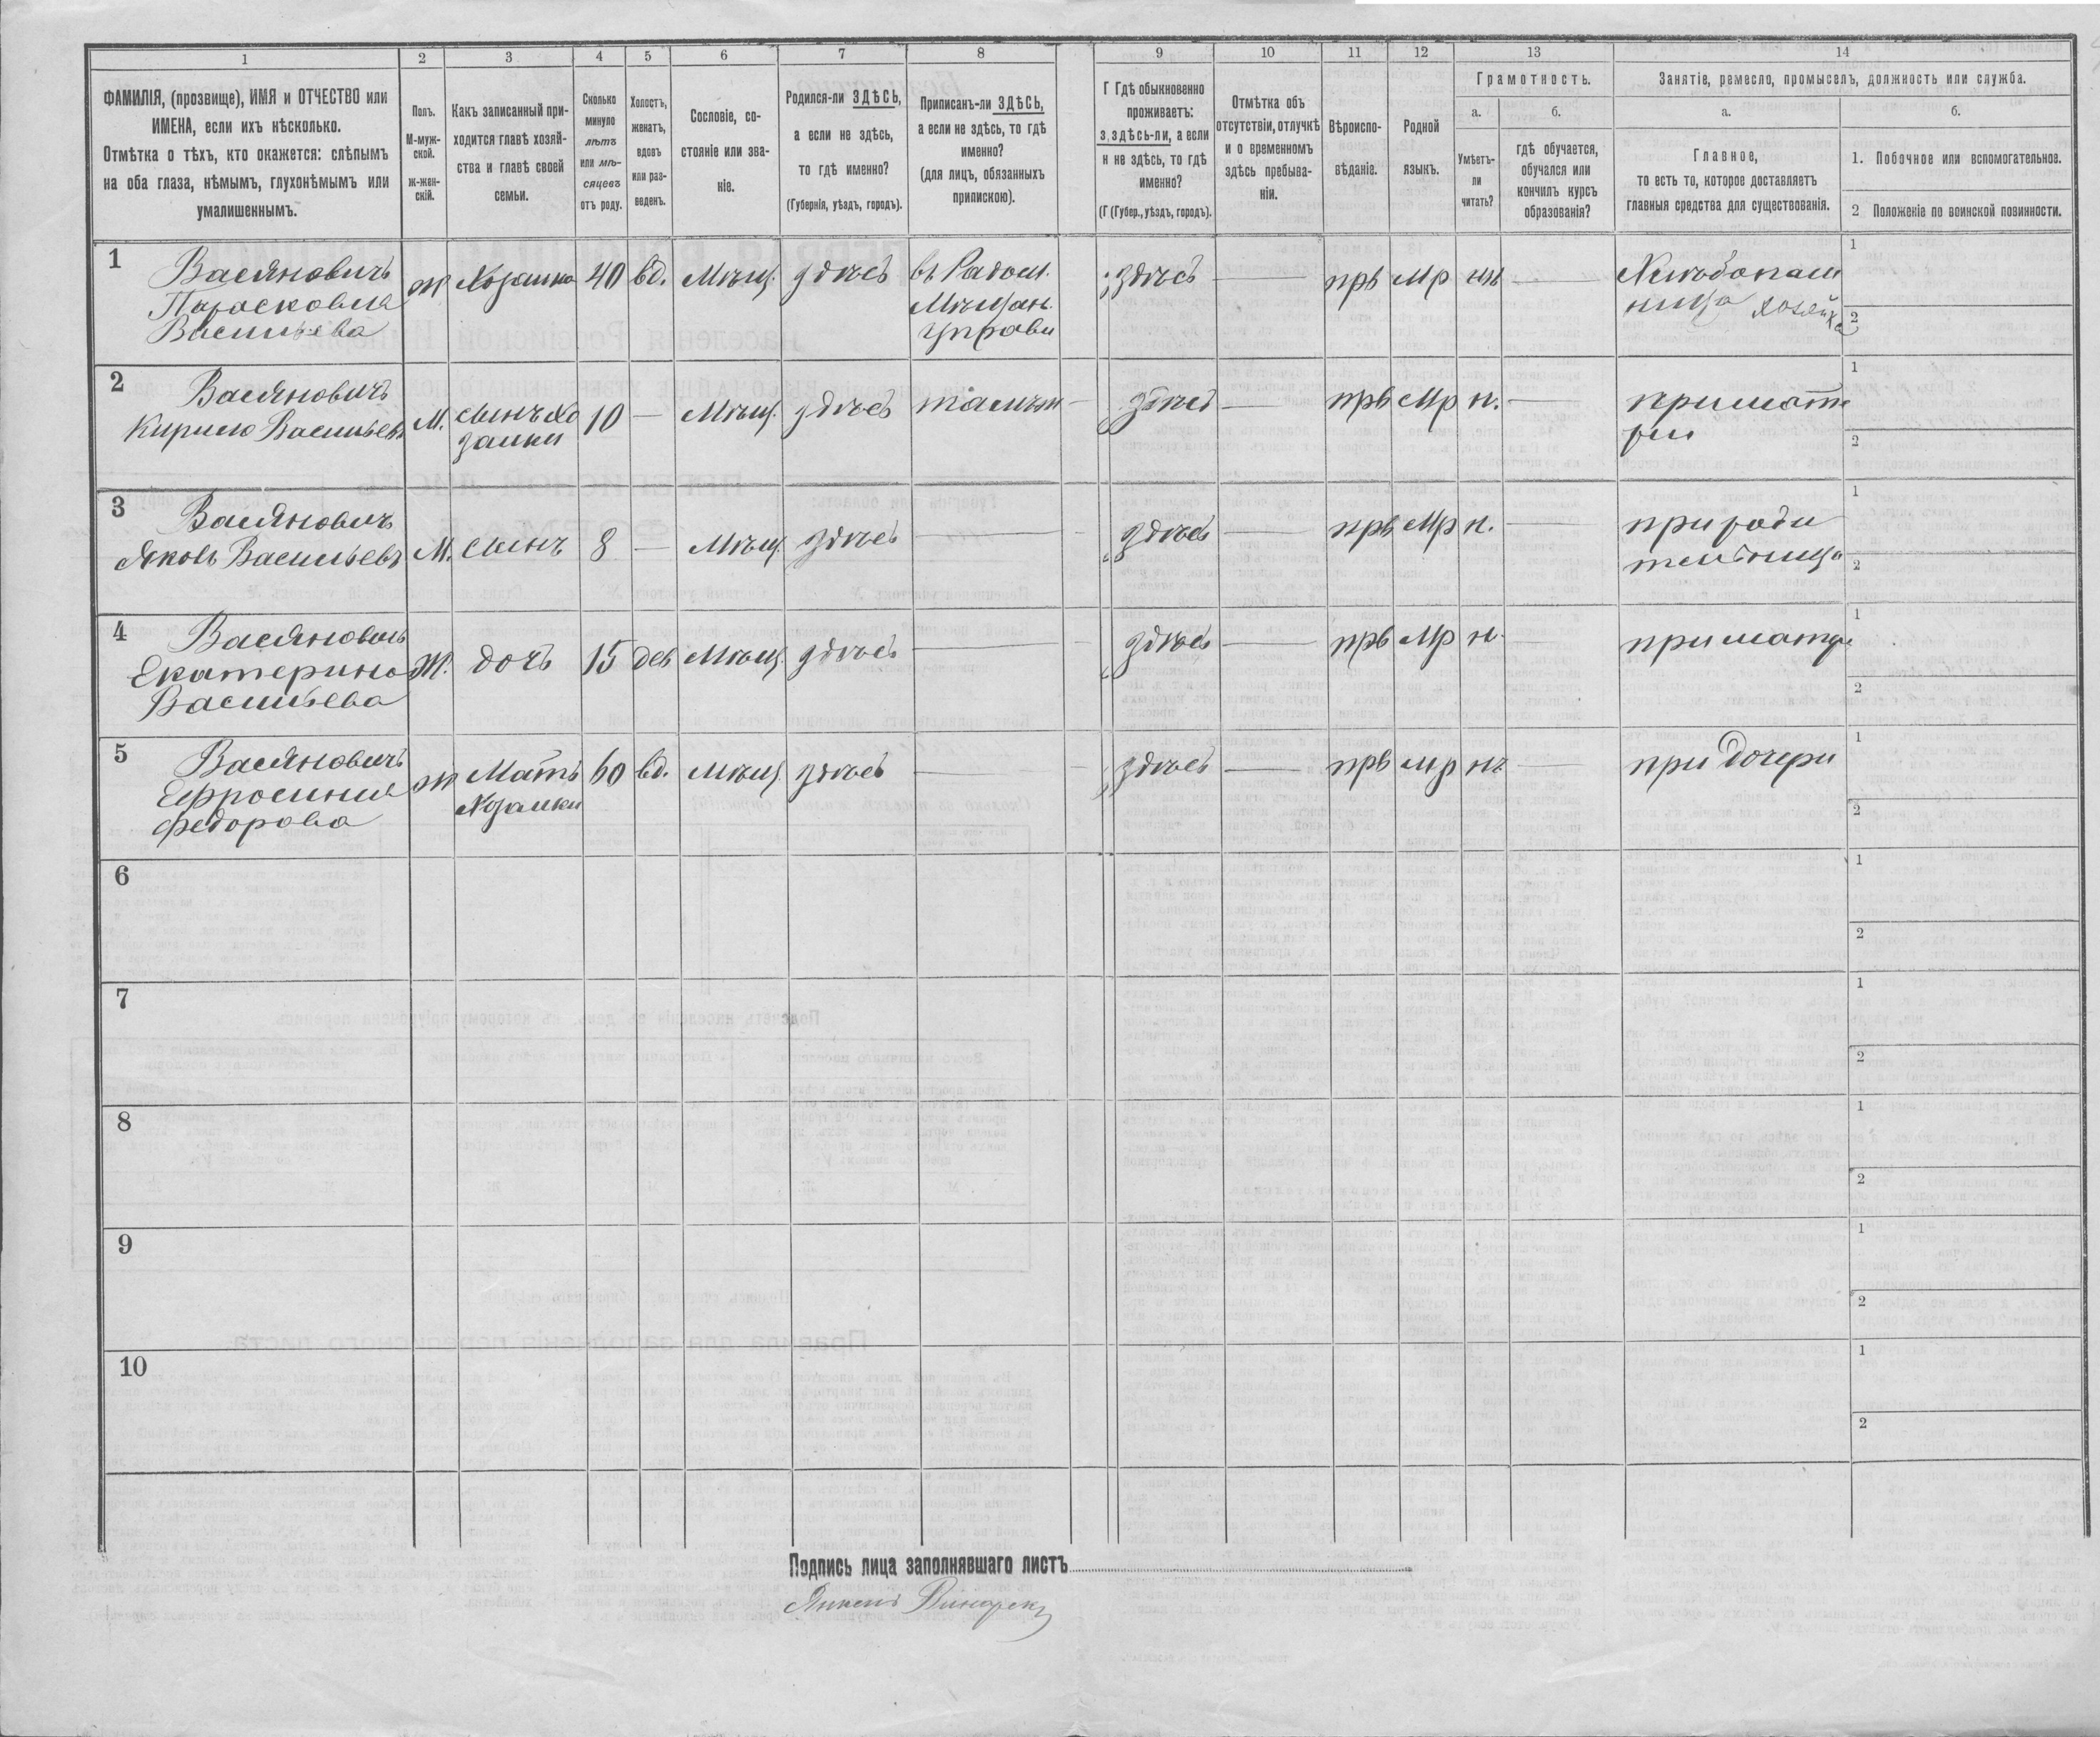 1
2
3
4
5
6
7
8
9
10
11
12
13
14
ФАМИЛІЯ, (прозвище), ИМЯ и ОТЧЕСТВО или
ИМЕНА, если ихъ нѣсколько.
Отмѣтка о тѣхъ, кто окажется: слѣпымъ
на оба глаза, нѣмымъ, глухонѣмымъ или
умалишеннымъ.
Полъ.
М-муж-
ской.
ж-жен-
скій.
Какъ записанный при-
ходится главѣ хозяй-
ства и главѣ своей
семьи.
Сколько
минуло
лѣтъ
или мѣ-
сяцевъ
отъ роду.
Холостъ,
женатъ,
вдовъ
или раз-
веденъ.
Сословіе, со-
стояніе или зва-
ніе.
Родился-ли ЗДѢСЬ,
а если не здѣсь,
то гдѣ именно?
(Губернія, уѣздъ, городъ).
Приписанъ-ли ЗДѢСЬ,
а если не здѣсь, то гдѣ
именно?
(для лицъ, обязанныхъ
припискою).
Г Гдѣ обыкновенно
проживаетъ:
з здѣсь-ли, а если
н не здѣсь, то гдѣ
именно?
(Г (Губер., уѣздъ, городъ).
Отмѣтка объ
отсутствіи, отлучкѣ
и о временномъ
здѣсь пребыва-
ніи.
Вѣроиспо-
вѣданіе.
Родной
языкъ.
Грамотность.
а.
Умѣетъ-
ли
читать?
б.
гдѣ обучается,
обучался или
кончилъ курсъ
образованія?
Занятіе, ремесло, промыселъ, должность или служба.
а.
Главное,
то есть то, которое доставляетъ
главныя средства для существованія.
б.
1. Побочное или вспомогательное.
2 Положеніе по воинской повинности.
1
Васяновичъ
Парасковия
Васильева
ж Хозяйка 40 вд. Мѣщ. здѣсь
въ Радом.
Мѣщан.
Управи
здѣсь — прв Мр нѣ —
Хлѣбопаш
ница хозяйка
1
2
2
Васяновичъ
Кирило Васильевъ
М.
сынъ Хо
зяйки
10 — Мѣщ. здѣсь тамъ — здѣсь — прв Мр н. —
при мате
ри
1
2
3
Васяновичъ
Яковъ Васильевъ
М. сынъ 8 — Мѣщ. здѣсь — здѣсь — прв Мр н. —
при роди
тельница
1
2
4
Васяновичъ
Екатерина
Васильева
Ж. дочь 15 дев Мѣщ. здѣсь — здѣсь — прв Мр н. —
при матери
1
2
5
Васяновичъ
Ефросиния
Федорова
ж
Мать
Хозяйки
60 вд. мѣщ. здѣсь — здѣсь — прв мр нѣ —
при дочери
1
2
6
1
2
7
1
2
8
1
2
9
1
2
10
1
2
Подпись лица заполнявшаго листъ